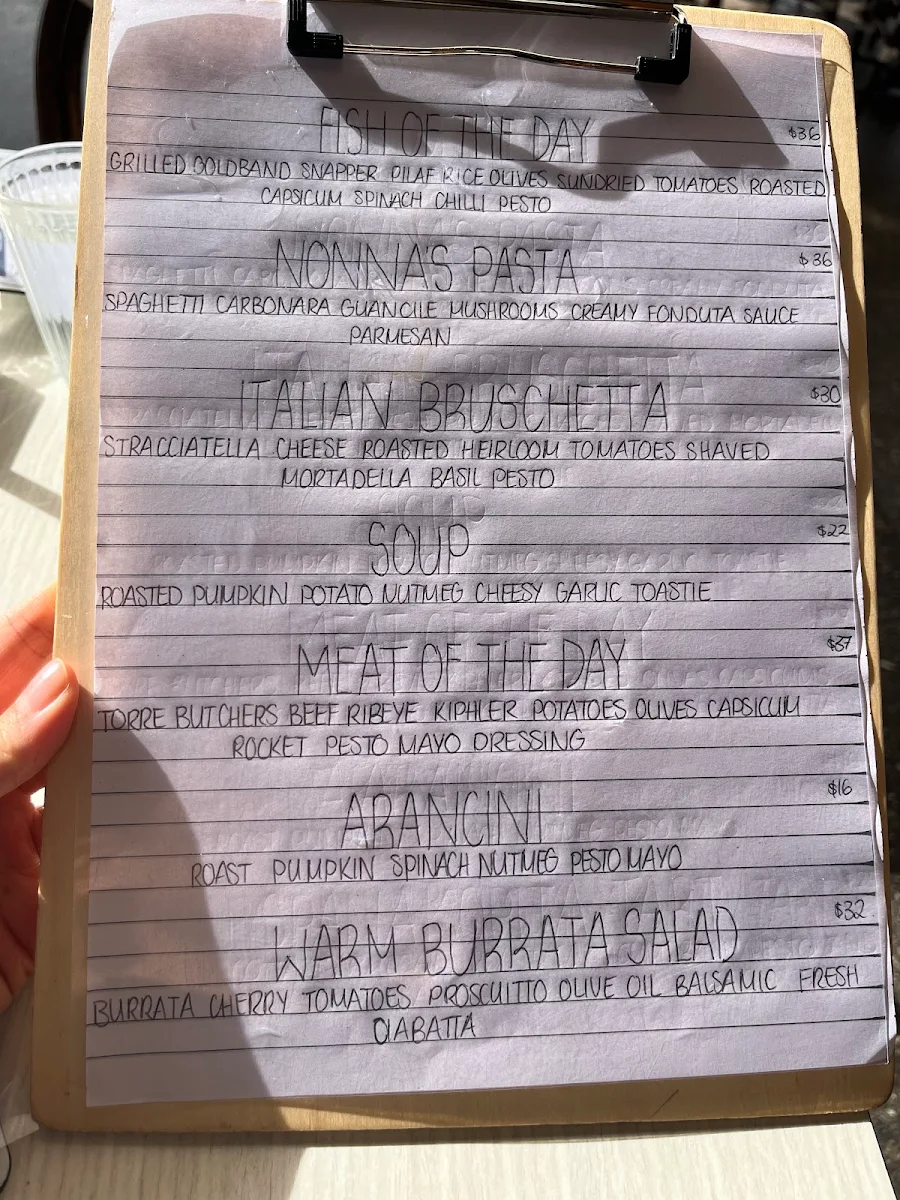 FISH OF THE DAY $36
GRILLED GOLDBAND SNAPPER PILAF RICE OLIVES SUNDRIED TOMATOES ROASTED
CAPSICUM SPINACH CHILLI PESTO
NONNA'S PASTA $36
SPAGHETTI CARBONARA GUANCILE MUSHROOMS CREAMY FONDUTA SAUCE
PARMESAN
ITALIAN BRUSCHETTA $30
STRACCIATELLA CHEESE ROASTED HEIRLOOM TOMATOES SHAVED
MORTADELLA BASIL PESTO
SOUP $22
ROASTED PUMPKIN POTATO NUTMEG CHEESY GARLIC TOASTIE
MEAT OF THE DAY $37
TORRE BUTCHERS BEEF RIBEYE KIPHLER POTATOES OLIVES CAPSICUM
ROCKET PESTO MAYO DRESSING
ARANCINI $16
ROAST PUMPKIN SPINACH NUTMEG PESTO MAYO
WARM BURRATA SALAD $32
BURRATA CHERRY TOMATOES PROSCUITTO OLIVE OIL BALSAMIC FRESH
CIABATTA